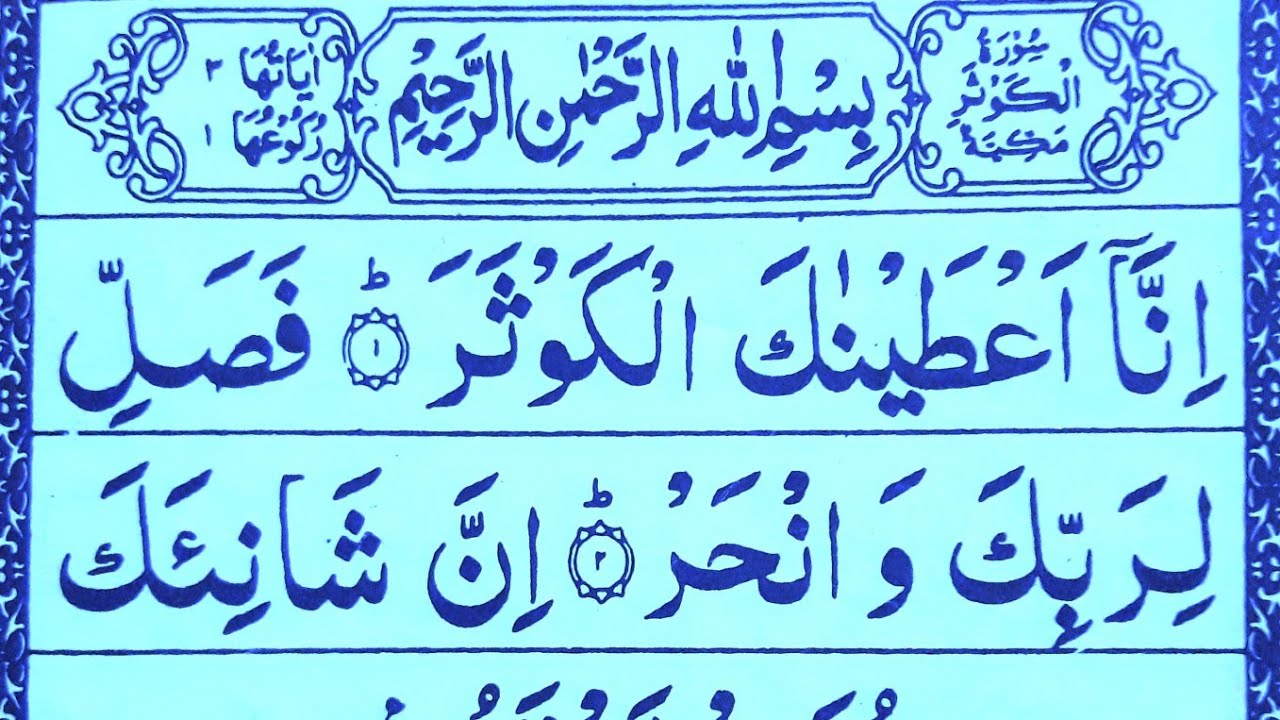 سُوْرَةُ
الْكَوْثَرِ
مَكِّيَّةٌ
بِسْمِ اللّٰهِ الرَّحْمٰنِ الرَّحِيْمِ
اٰيَاتُهَا ٣
رُكُوْعُهَا ١
اِنَّاۤ اَعْطَيْنٰكَ الْكَوْثَرَ ؕ ١ فَصَلِّ
لِرَبِّكَ وَ انْحَرْ ؕ ٢ اِنَّ شَانِئَكَ